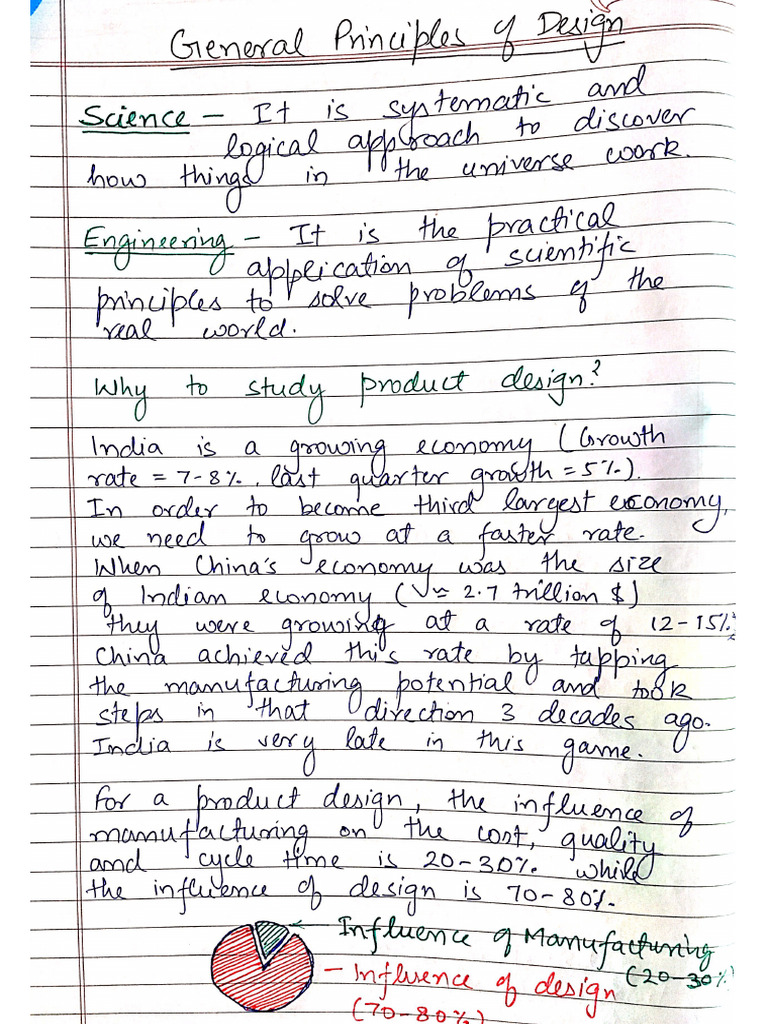 General Principles of Design
Science – It is systematic and
logical approach to discover
how things in the universe work.
Engineering – It is the practical
application of scientific
principles to solve problems of the
real world.
Why to study product design?
India is a growing economy (Growth
rate = 7-8%, last quarter growth = 5%).
In order to become third largest economy,
we need to grow at a faster rate.
When China's economy was the size
of Indian economy (≈ 2.7 trillion $)
they were growing at a rate of 12-15%
China achieved this rate by tapping
the manufacturing potential and took
steps in that direction 3 decades ago.
India is very late in this game.
For a product design, the influence of
manufacturing on the cost, quality
and cycle time is 20-30% while
the influence of design is 70-80%.
Influence of Manufacturing
(20-30%)
– Influence of design
(70-80%)